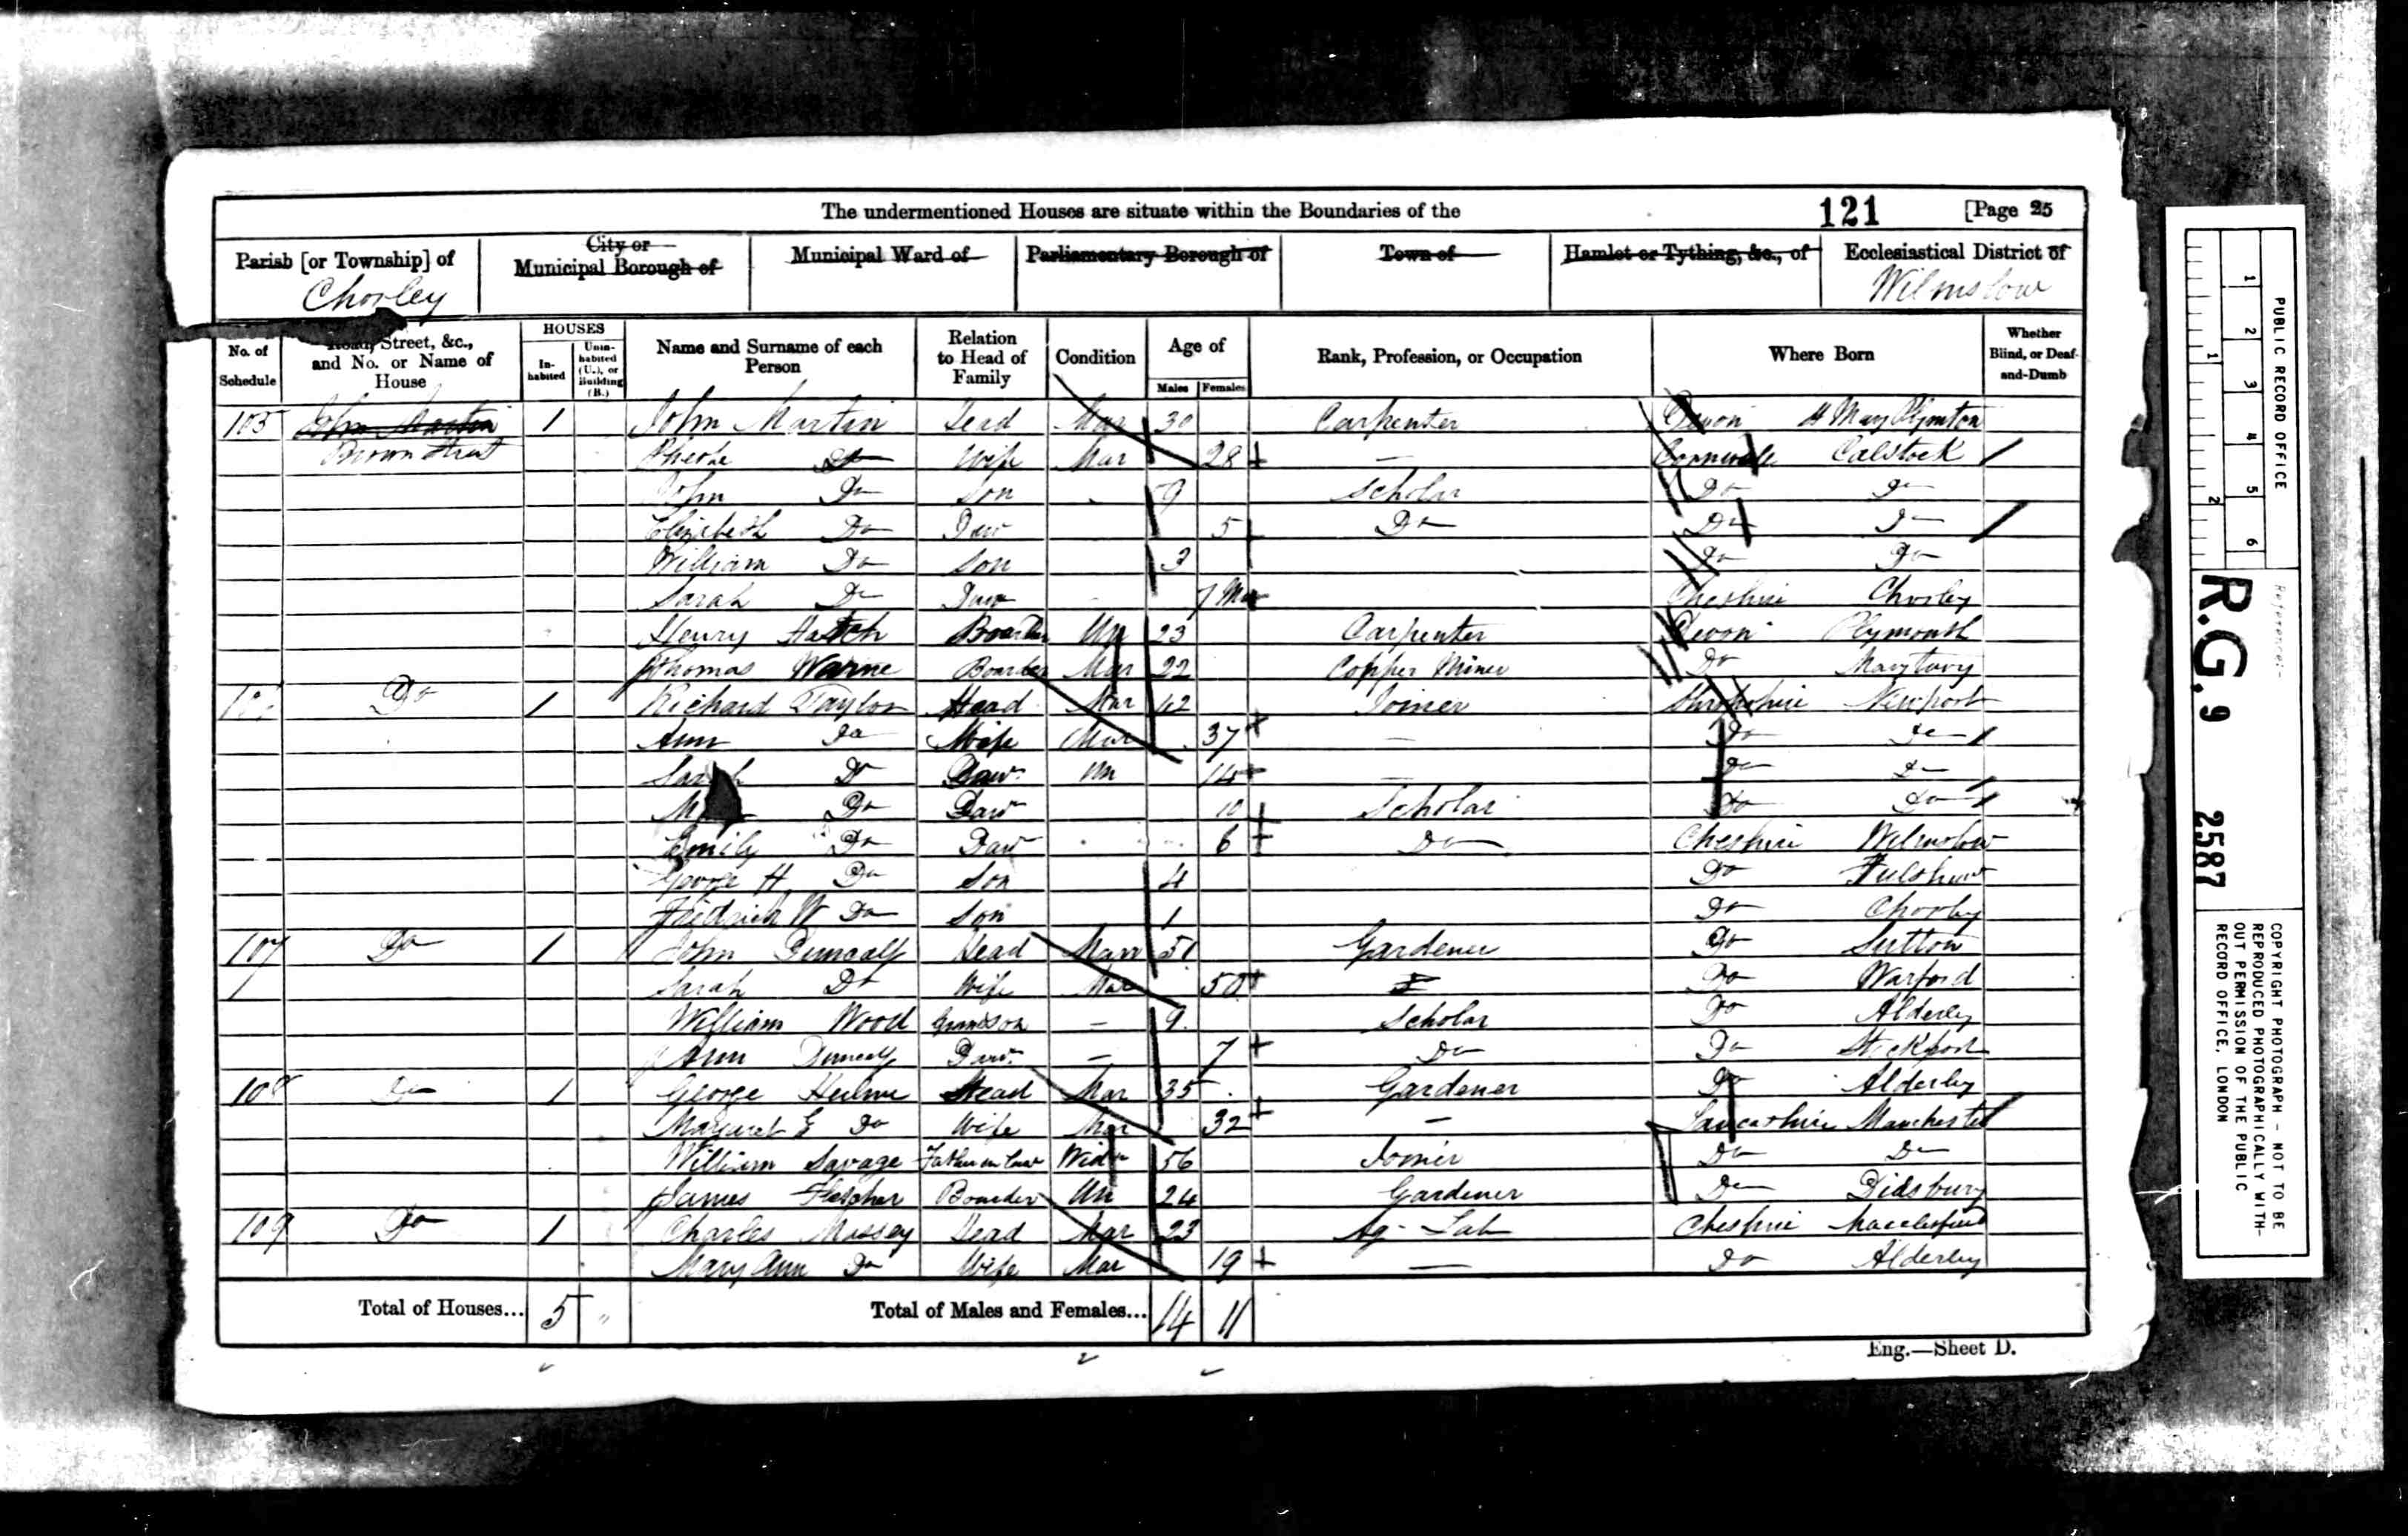 The undermentioned Houses are situate within the Boundaries of the 121 [Page 25
Parish [or Township] of City or Municipal Borough of Municipal Ward of Parliamentary Borough of Town of Hamlet or Tything, &c., of Ecclesiastical District of
Chorley Wilmslow
No. of Schedule Road, Street, &c., and No. or Name of House HOUSES Inhabited Uninhabited (U.), or Building (B.) Name and Surname of each Person Relation to Head of Family Condition Age of Males Females Rank, Profession, or Occupation Where Born Whether Blind, or Deaf-and-Dumb
105 John Martin 1 John Martin Head Mar 30 Carpenter Devon Mary
Brown Street Phebe Do Wife Mar 28 — Cornwall Calstock
John Do Son - 9 Scholar Do Do
Elizabeth Do Daur 5 Do Do Do
William Do Son 3 Do Do
Sarah Do Daur 7 Mo Cheshire Chorley
Henry Hatch Boarder Un 23 Carpenter Devon Plymouth
Thomas Warne Boarder Mar 22 Copper Miner Do Marytavy
Do 1 Richard Taylor Head Mar 42 Joiner Shropshire Newport
Ann Do Wife Mar 37 — Do Do
Sarah Do Daur Un 14 — Do Do
M Do Daur 10 Scholar Do Do
Emily Do Daur 6 Do Cheshire Wilmslow
George H Do Son 4 Do Fulshaw
Fredrick W Do Son 1 Do Chorley
107 Do 1 John Duncalf Head Marr 51 Gardener Do Sutton
Sarah Do Wife Mar 50 Do Warford
William Wood Grandson — 9 Scholar Do Alderley
Ann Duncalf Daur — 7 Do Do Stockport
108 Do 1 George Hulme Head Mar 35 Gardener Do Alderley
Margaret E Do Wife Mar 32 — Lancashire Manchester
William Savage Father in law Widr 56 Joiner Do Do
James Fletcher Boarder Un 24 Gardener Do Didsbury
109 Do 1 Charles Massey Head Mar 23 Ag- Lab Cheshire Macclesfield
Mary Ann Do Wife Mar 19 — Do Alderley
Total of Houses... 5 " Total of Males and Females... 14 11
Eng.—Sheet D.
PUBLIC RECORD OFFICE
1 2 3 4 5 6
1 2
Reference:-
R.G. 9 2587
COPYRIGHT PHOTOGRAPH - NOT TO BE
REPRODUCED PHOTOGRAPHICALLY WITH-
OUT PERMISSION OF THE PUBLIC
RECORD OFFICE, LONDON